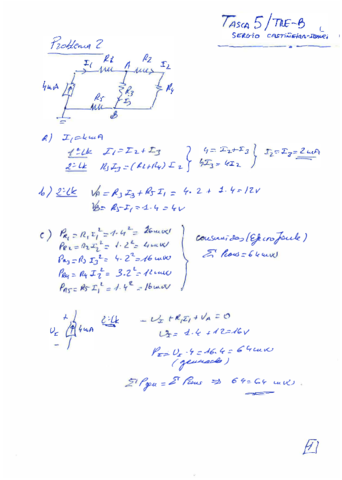 TASCA 5/TRE-B
SERGIO
Problema 2
I1 R1 A R2 I2
4mA R3 R4
R5 I3
B
a) I1=4mA
1ª LK I1=I2+I3 4=I2+I3 I2=I3=2mA
2ª LK R3I3=(R2+R4)I2 4I3=4I2
b) 2ª LK VA=R3I3+R5I1=4·2+1·4=12V
VB=R5I1=1·4=4V
c) PR1=R1I1²=1·4²=16mW
PR2=R2I2²=1·2²=4mW
PR3=R3I3²=4·2²=16mW
PR4=R4I2²=3·2²=12mW
PR5=R5I1²=1·4²=16mW
consumidas (Efecto Joule)
Σ Pcons=64mW
+
4mA 2ª LK -UI+R1I1+VA=0
-
UI=1·4+12=16V
PI=UI·4=16·4=64mW
(generada)
Σ Pgen=Σ Pcons ⇒ 64=64 mW.
1